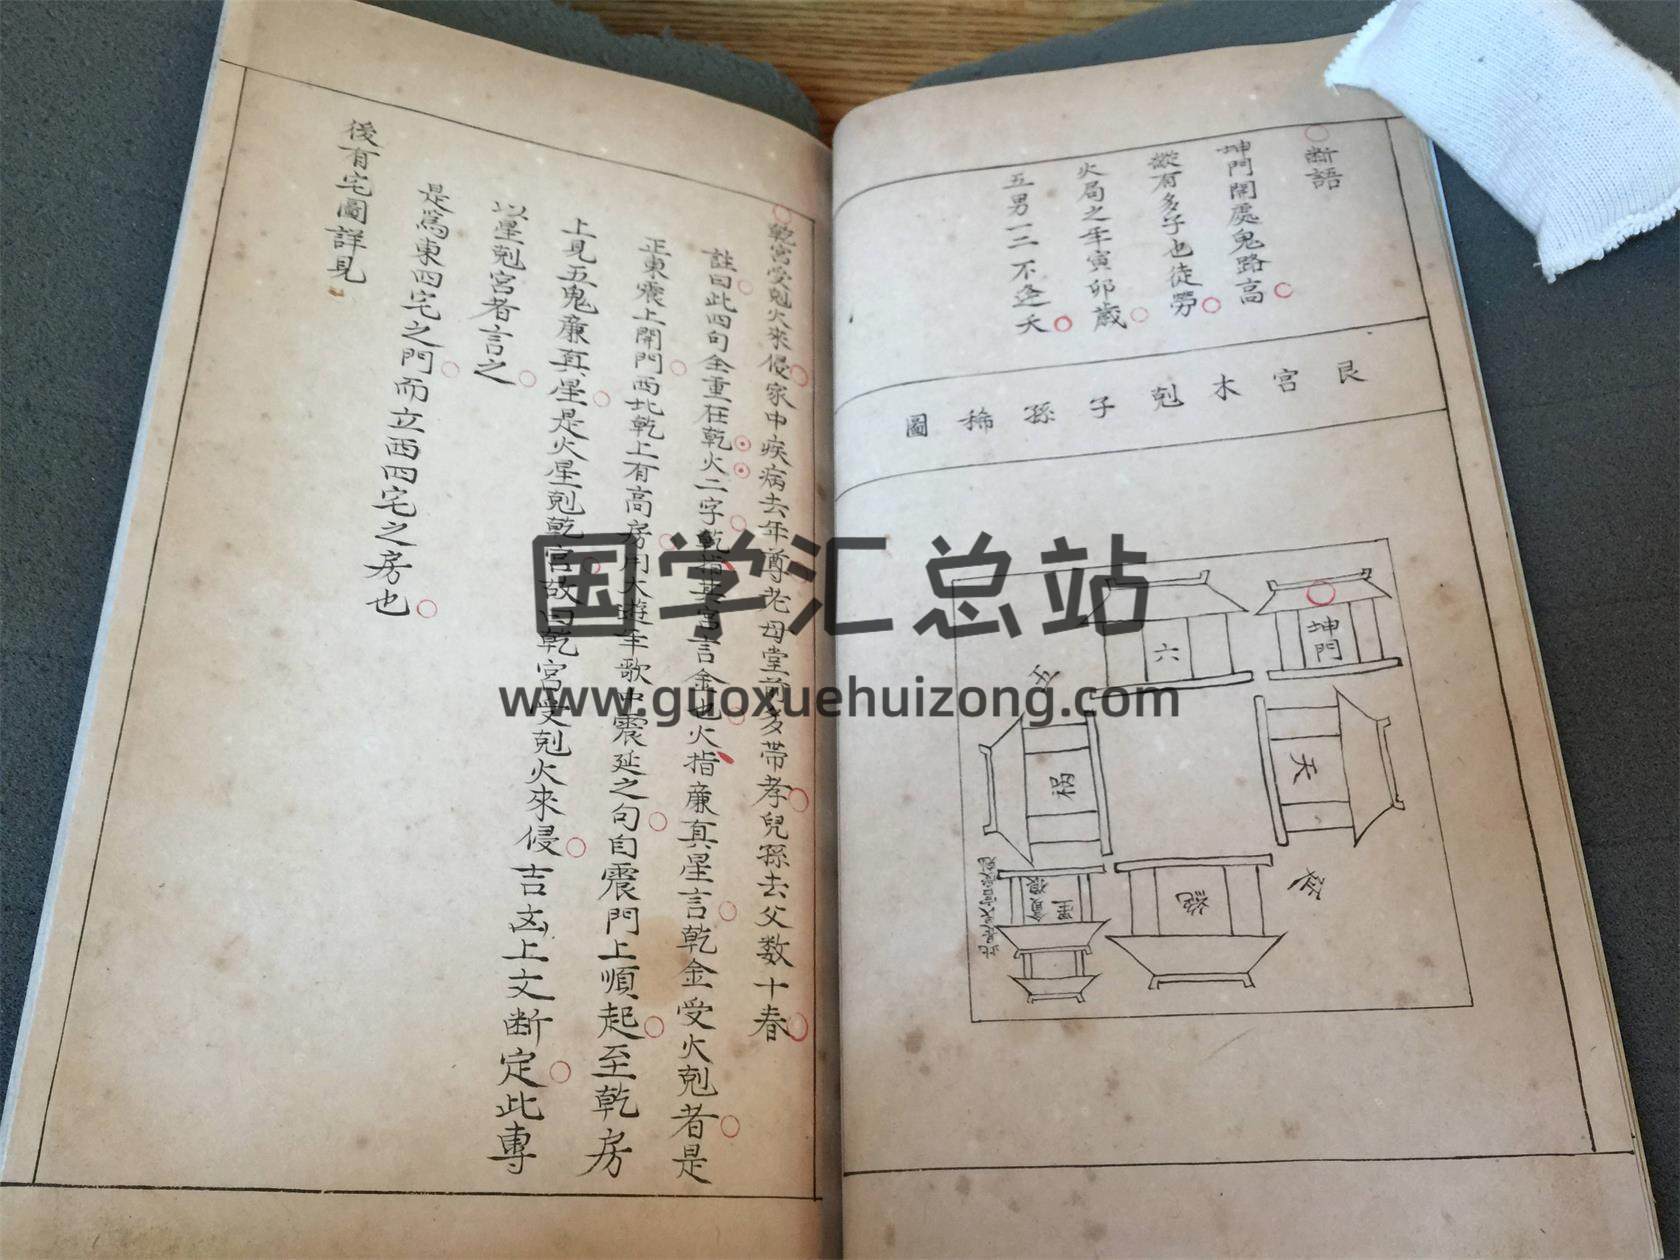 斷語
坤門開處鬼路高
縱有多子也徒勞
火局之年寅卯歲
五男一二不逢夭
艮宮木剋子孫稀圖
坤門
六
天
禍
絕
貪狼星
乾宮受剋火來侵家中疾病去年尊老母堂前多帶孝兒孫去父数十春
註曰此四句全重在乾火二字乾指其宮言金也火指廉真星言乾金受火剋者是
正東震上開門西北乾上有高房用大遊年歌中震延之句自震門上順起至乾房
上見五鬼廉真星是火星剋乾宮故曰乾宮受剋火來侵吉凶上文断定此專
以星剋宮者言之
是爲東四宅之門而立西四宅之房也
後有宅圖詳見
国学汇总站
www.guoxuehuizong.com